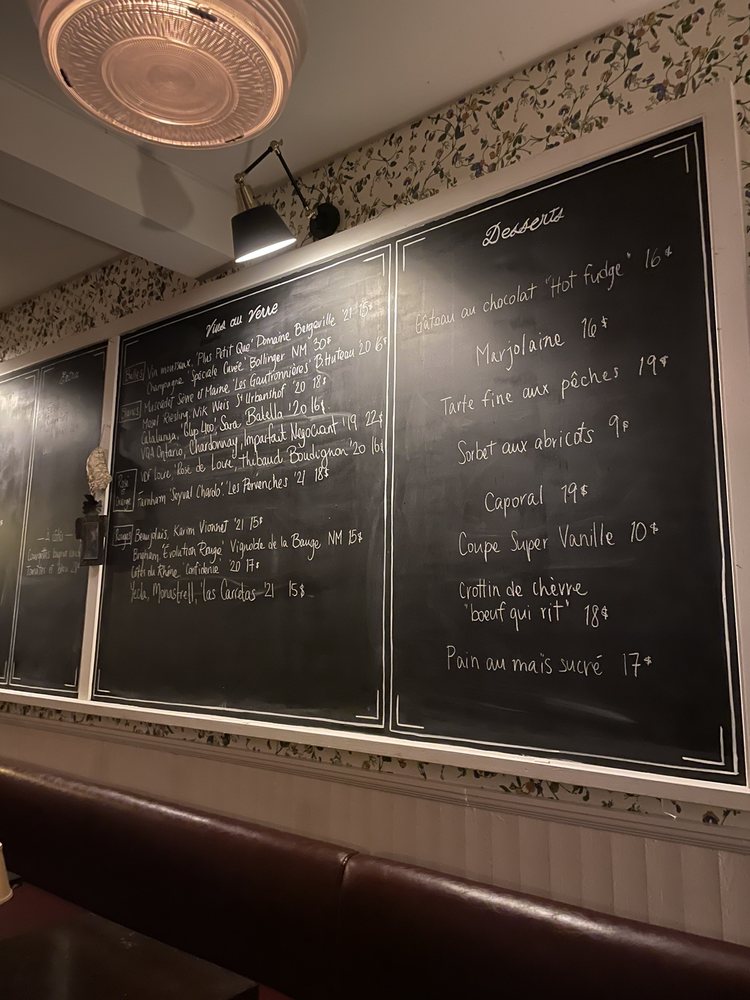 Vins au Verre
Bulles
Vin mousseux, 'Plus Petit Que' Domaine Bergeville '21 15$
Champagne 'Spéciale Cuvée' Bollinger NM 30$
Blancs
Muscadet Sèvre et Maine 'Les Gautronnières' B.Huteau '20
Mosel Riesling, Nik Weis St Urbanshof '20 18$
Catalunya, Sara Batella '20 16$
VQA Ontario, Chardonnay, Imparfait Négociant '19 22$
VDF Loire 'Rosé de Loire, Thibaud Boudignon '20 16$
Farnham 'Seyval Chardo' 'Les Pervenches' '21 18$
Rouges
Beaujolais, Karim Vionnet '21 15$
Brigham 'Évolution Rouge' Vignoble de la Bauge, NM 15$
Côtes du Rhône 'Confidence' '20 17$
Yecla, Monastrell, 'Las Carretas '21 15$
Desserts
Gâteau au chocolat "Hot fudge" 16$
Marjolaine 16$
Tarte fine aux pêches 19$
Sorbet aux abricots 9$
Caporal 19$
Coupe Super Vanille 10$
Crottin de chèvre
"boeuf qui rit" 18$
Pain au maïs sucré 17$